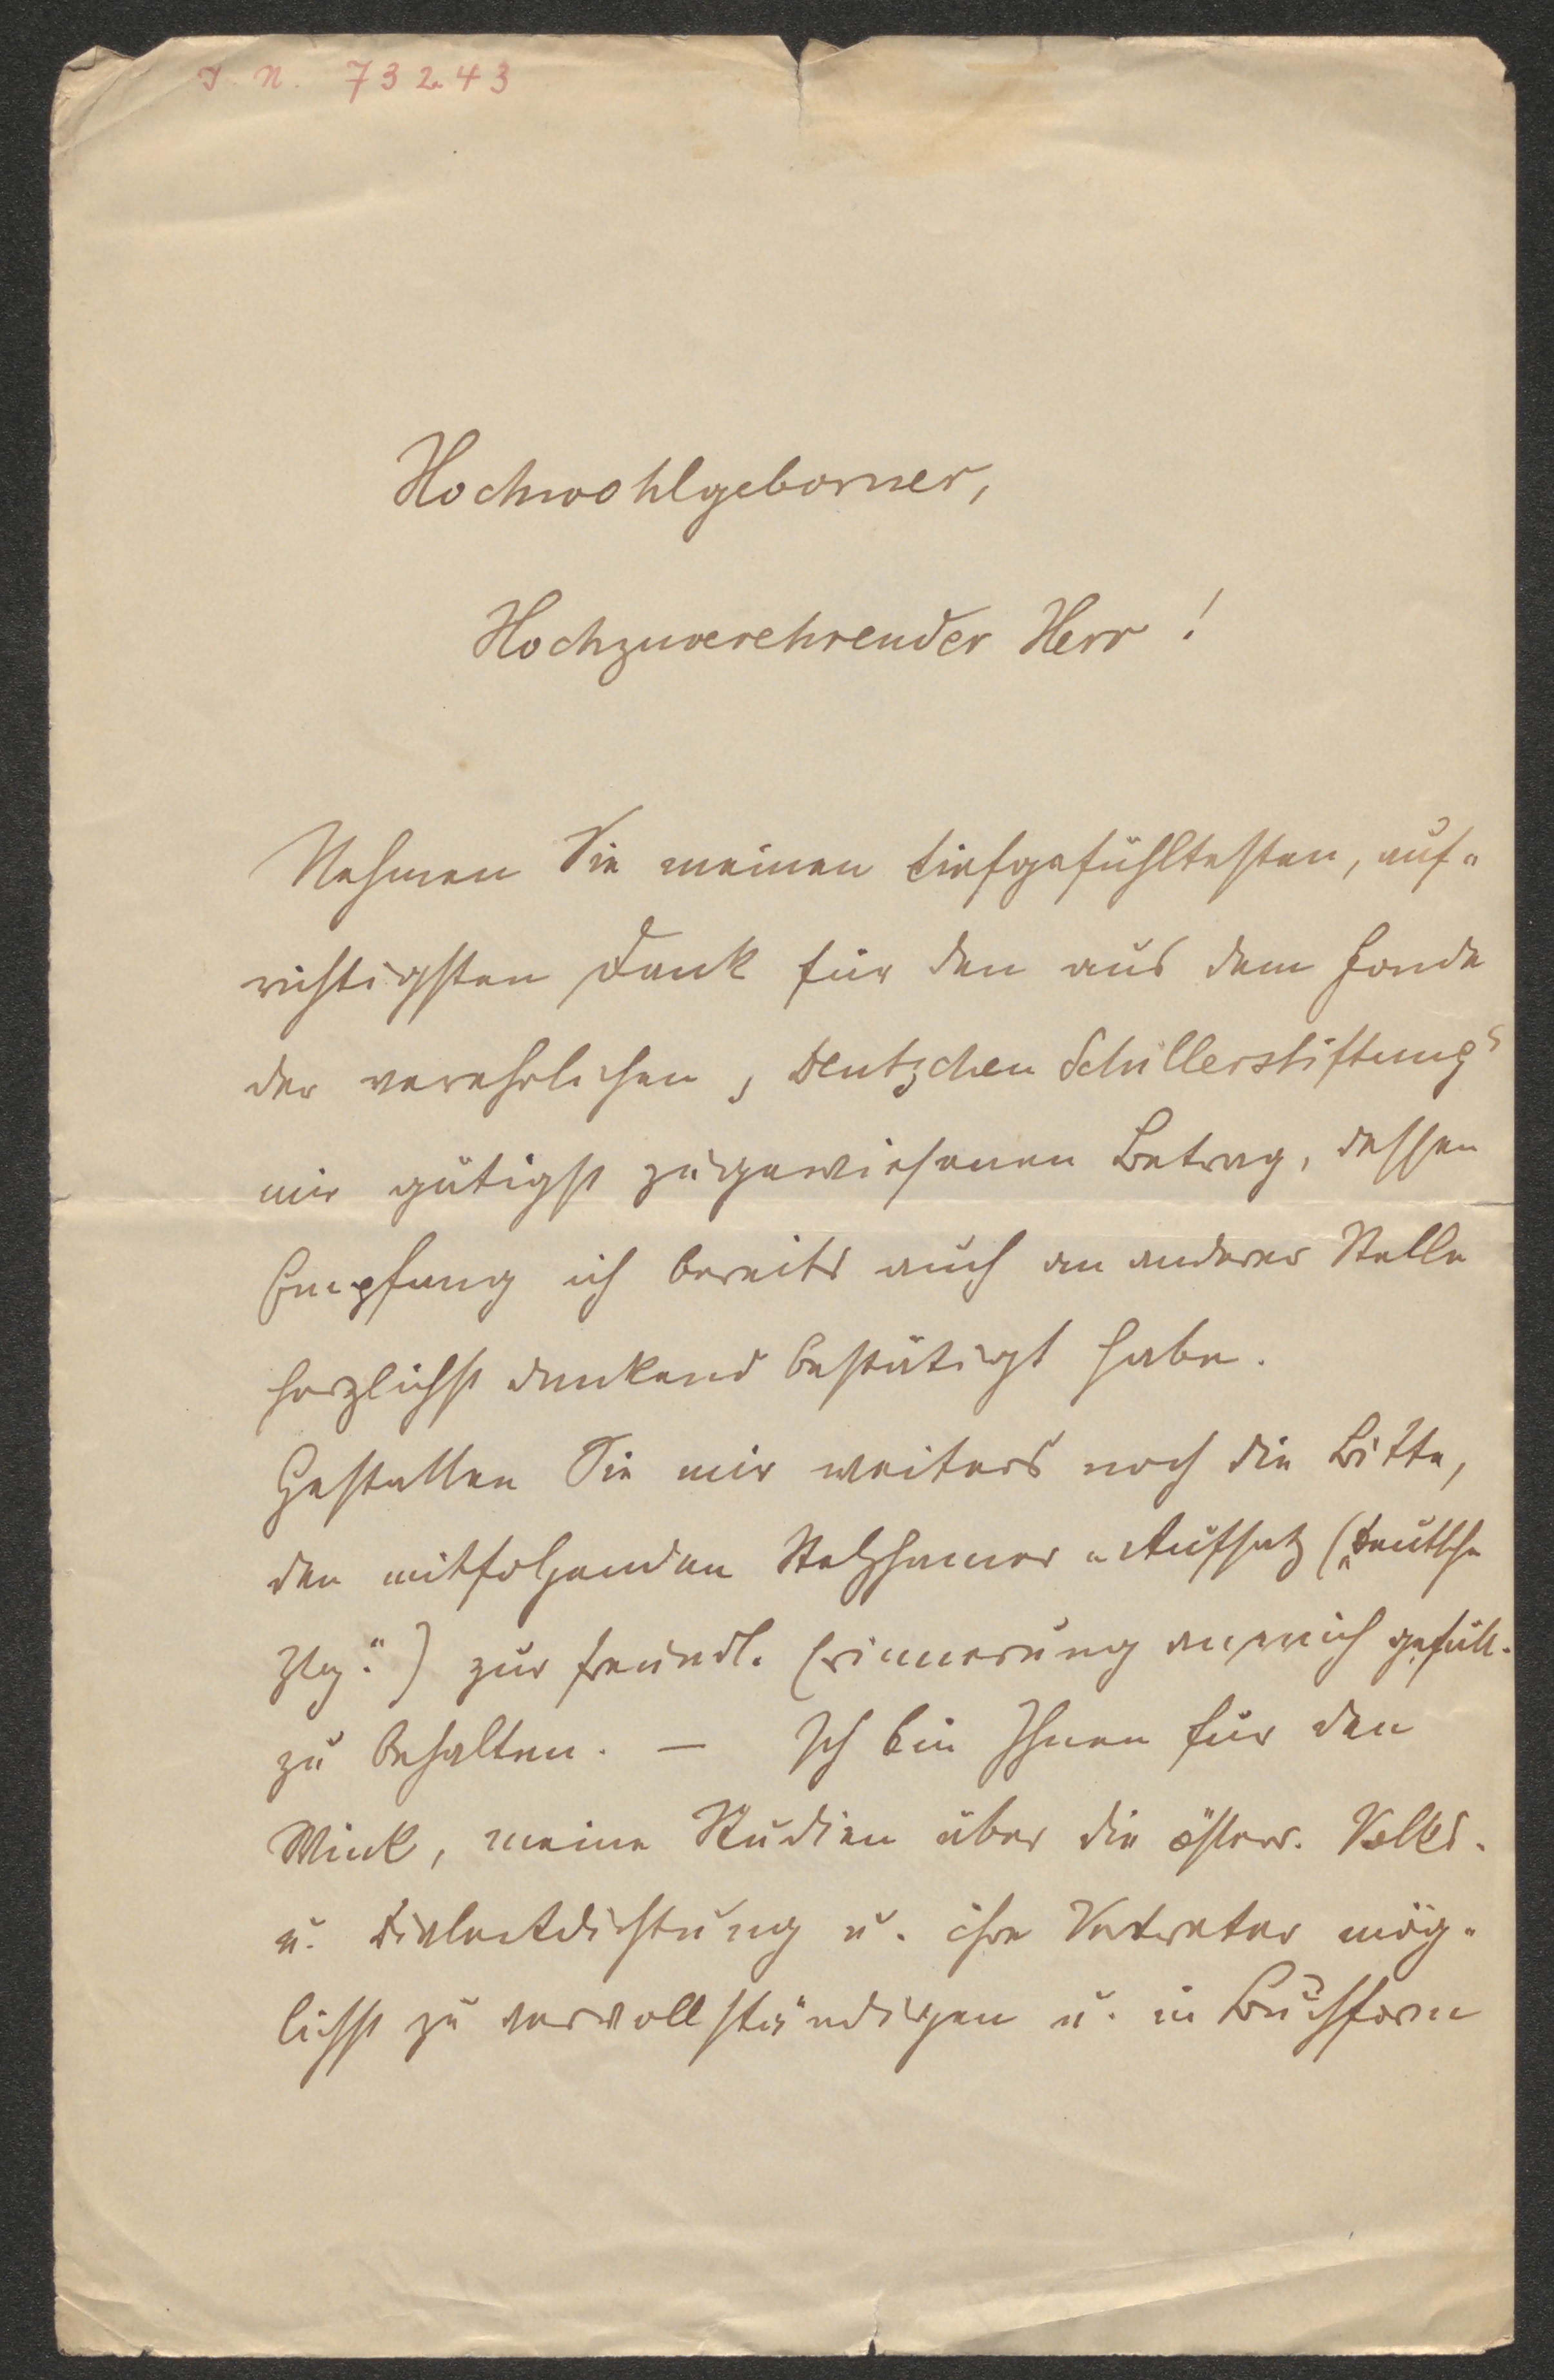 I. N. 73243
Hochwohlgeborner,
Hochzuverehrender Herr!
Nehmen Sie meinen tiefgefühltesten, auf-
richtigsten Dank für den aus dem Fonde
der verehrlichen „Deutschen Schillerstiftung“
mir gütigst zugewiesenen Betrag, dessen
Empfang ich bereits auch an anderer Stelle
herzlichst dankend bestätigt habe.
Gestatten Sie mir weiters noch die Bitte,
den mitfolgenden Stelzhamer-Aufsatz („Deutsche
Ztg.“) zur freundl. Erinnerung an mich gefäll.
zu behalten. — Ich bin Ihnen für den
Wink, meine Studien über die österr. Volks-
u. Dialectdichtung u. ihre Vertreter mög-
lichst zu vervollständigen u. in Buchform